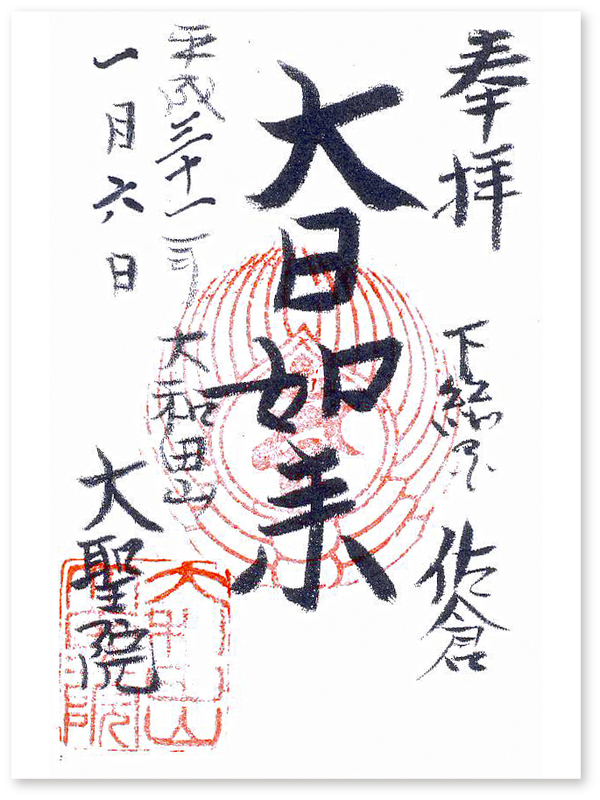 奉拝
下総国 佐倉
大日如来
平成三十一年
大和田山
一月六日
大聖院
大和田山
大聖院